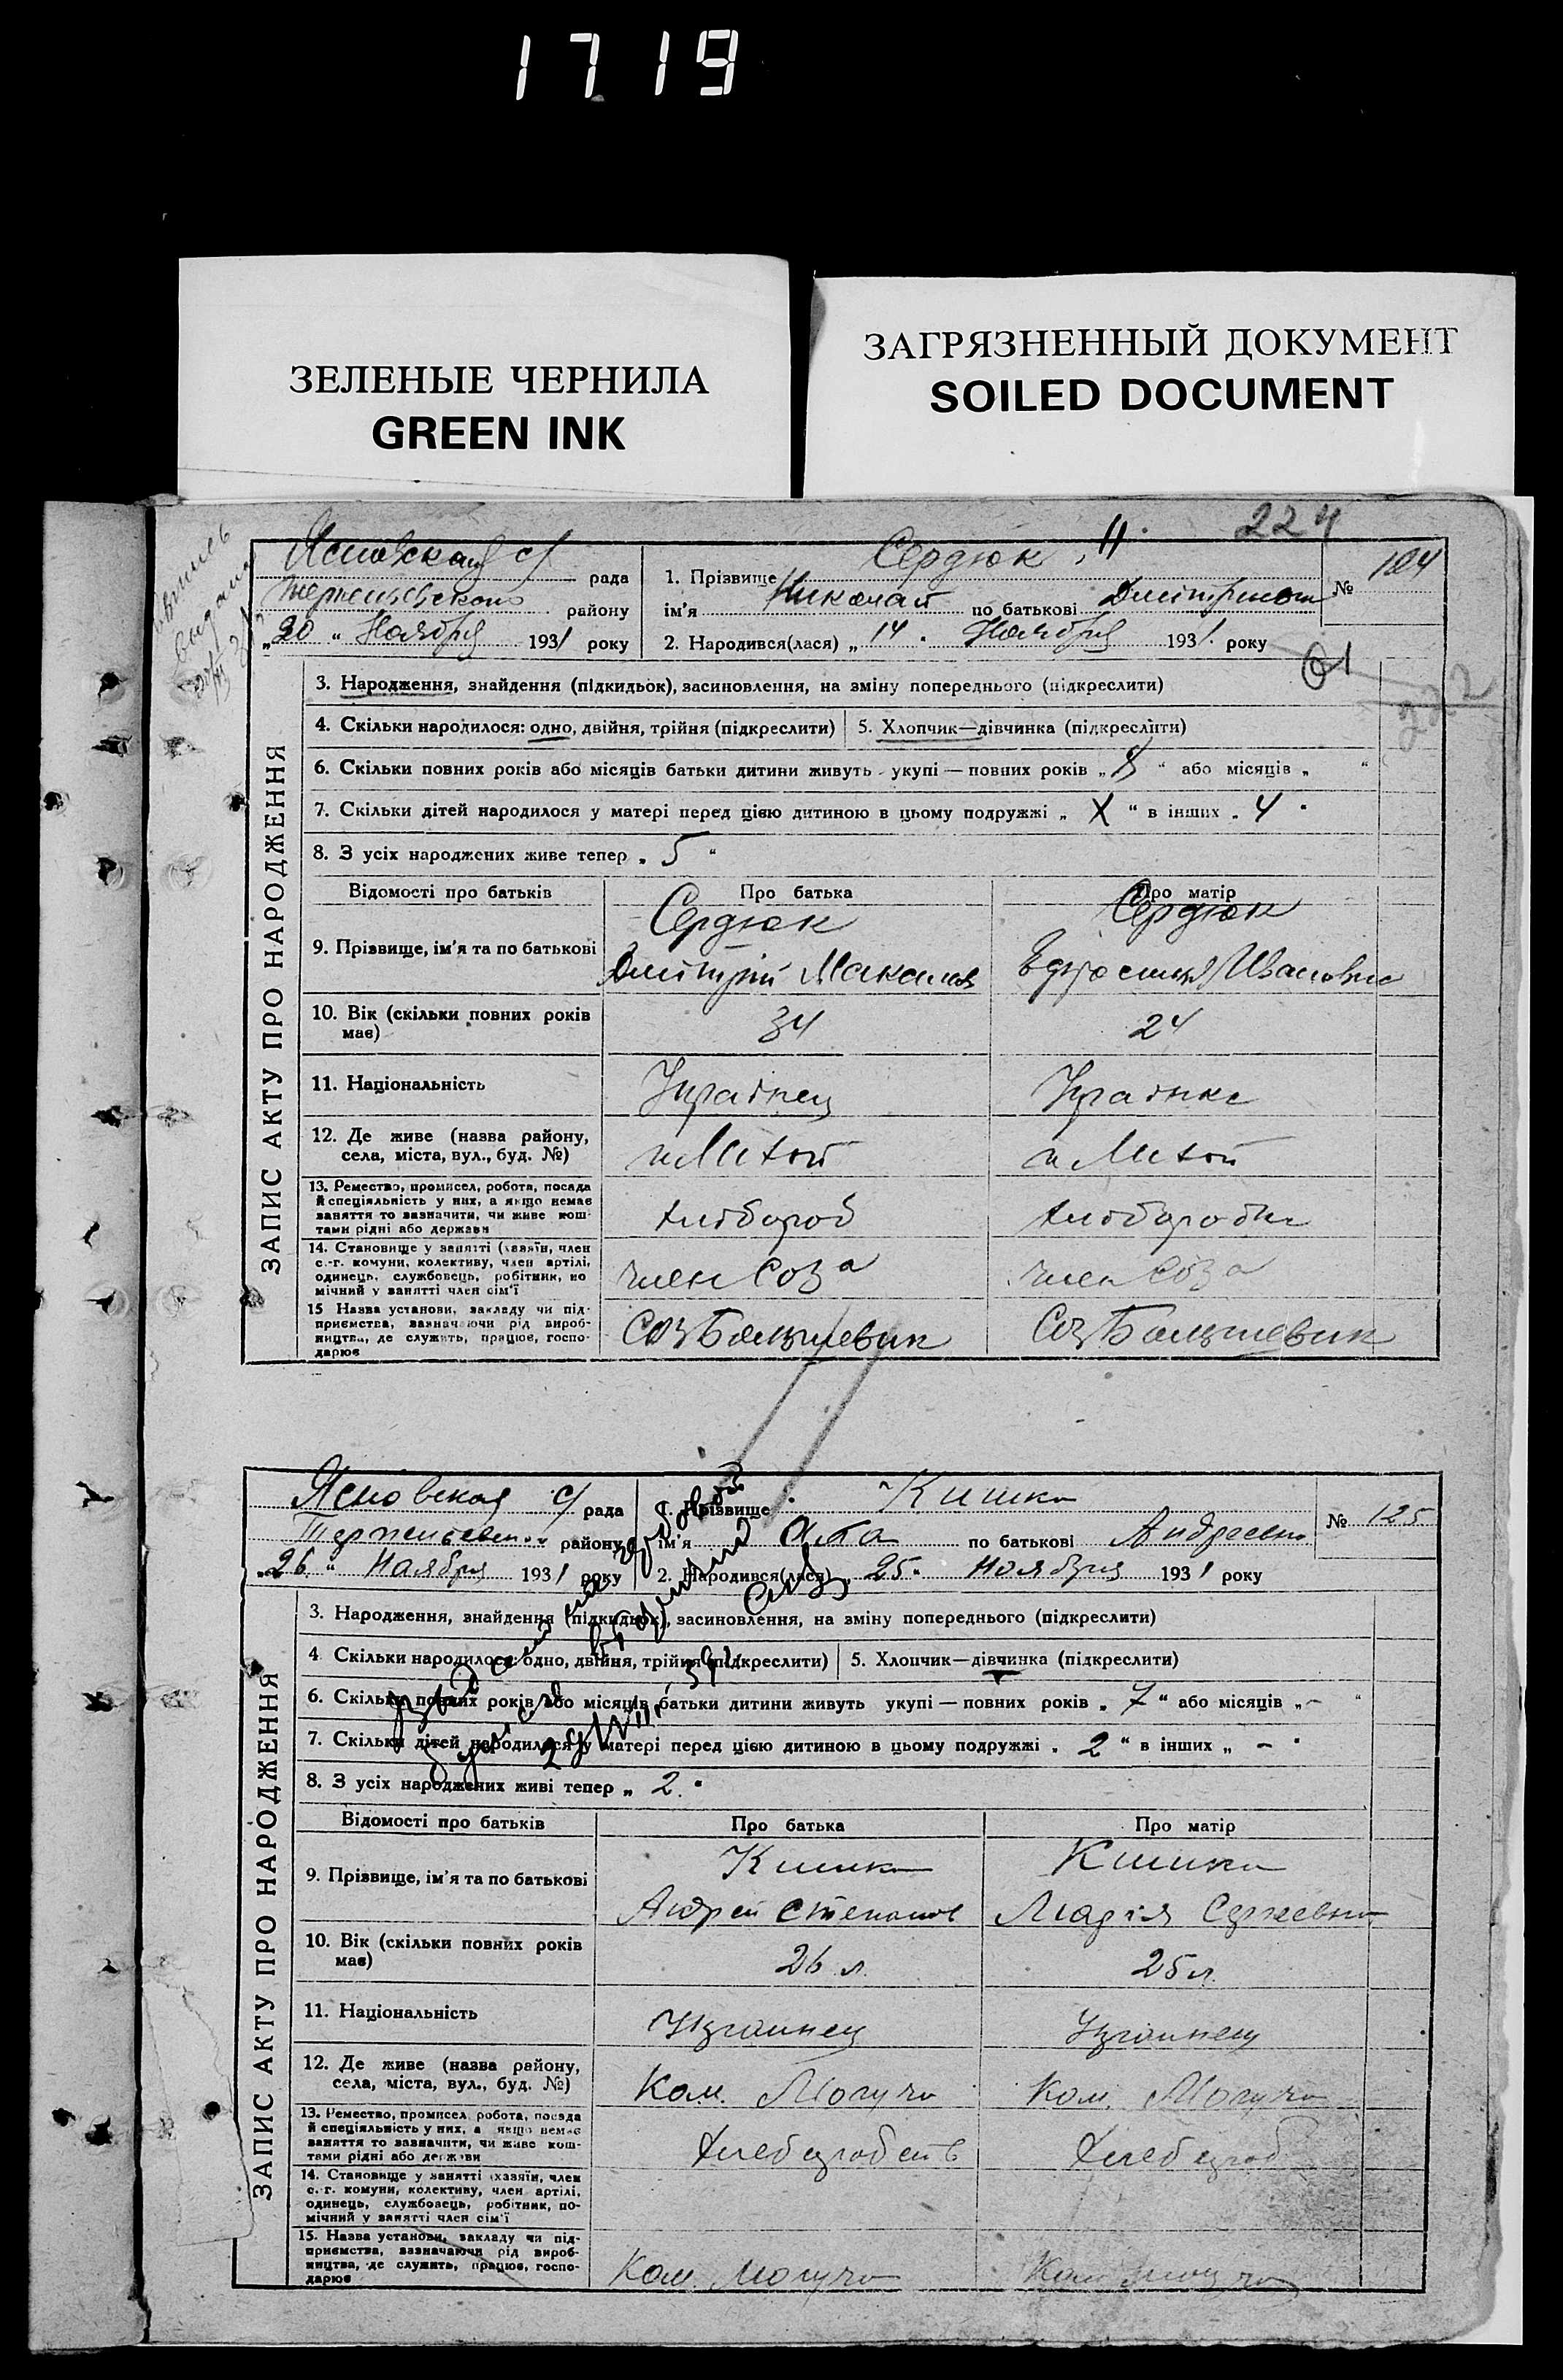 1719
ЗЕЛЕНЫЕ ЧЕРНИЛА
GREEN INK
ЗАГРЯЗНЕННЫЙ ДОКУМЕНТ
SOILED DOCUMENT
224
ЗАПИС АКТУ ПРО НАРОДЖЕННЯ
с/ рада
району
„20 “ Ноября 1931 року
1. Прізвище Сердюк
ім'я Николай по батькові
2. Народився(лася) „ 14 “ Ноября 1931 року
№ 124
3. Народження, знайдення (підкидьок), засиновлення, на зміну попереднього (підкреслити)
4. Скільки народилося: одно, двійня, трійня (підкреслити)
5. Хлопчик—дівчинка (підкреслити)
6. Скільки повних років або місяців батьки дитини живуть укупі — повних років „ “ або місяців „ “
7. Скільки дітей народилося у матері перед цією дитиною в цьому подружжі „ X “ в інших „ 4 “
8. З усіх народжених живе тепер „ 5 “
Відомості про батьків
Про батька
Про матір
9. Прізвище, ім'я та по батькові
Сердюк
Дмитрий
Сердюк
Ивановна
10. Вік (скільки повних років має)
34
24
11. Національність
Украінец
Украінка
12. Де живе (назва району, села, міста, вул., буд. №)
13. Ремество, промисел, робота, посада
й спеціяльність у них, а якщо немає
заняття то зазначити, чи живе кош-
тами рідні або держави
Хлібороб
14. Становище у занятті (хазяїн, член
с.-г. комуни, колективу, член артілі,
одинець, службовець, робітник, по
мічний у занятті член сім'ї
член Соза
член Соза
15 Назва установи, закладу чи під-
приємства, зазначаючи рід вироб-
ництва, де служить, працює, госпо-
дарює
Соз Большевик
Соз Большевик
ЗАПИС АКТУ ПРО НАРОДЖЕННЯ
с/ рада
району
„26 “ Ноября 1931 року
1. Прізвище Кишка
ім'я по батькові Андреевна
2. Народився(лася) „ 25 “ Ноября 1931 року
№ 125
3. Народження, знайдення (підкидьок), засиновлення, на зміну попереднього (підкреслити)
4. Скільки народилося: одно, двійня, трійня (підкреслити)
5. Хлопчик—дівчинка (підкреслити)
6. Скільки повних років або місяців батьки дитини живуть укупі — повних років „ 7 “ або місяців „ – “
7. Скільки дітей народилося у матері перед цією дитиною в цьому подружжі „ 2 “ в інших „ – “
8. З усіх народжених живі тепер „ 2 “
Відомості про батьків
Про батька
Про матір
9. Прізвище, ім'я та по батькові
Кишка
Андрей Степанов
Кишка
Марія Сергеевна
10. Вік (скільки повних років має)
26 л.
25 л.
11. Національність
Украинец
Украинец
12. Де живе (назва району, села, міста, вул., буд. №)
Ком. Могуча
Ком. Могуча
13. Ремество, промисел робота, посада
й спеціяльність у них, а якщо немає
заняття то зазначити, чи живе кош-
тами рідні або держави
14. Становище у занятті (хазяїн, член
с.-г. комуни, колективу, член артілі,
одинець, службовець, робітник, по-
мічний у занятті член сім'ї
15. Назва установи, закладу чи під-
приємства, зазначаючи рід вироб-
ництва, де служить, працює, госпо-
дарює
Ком. Могуча